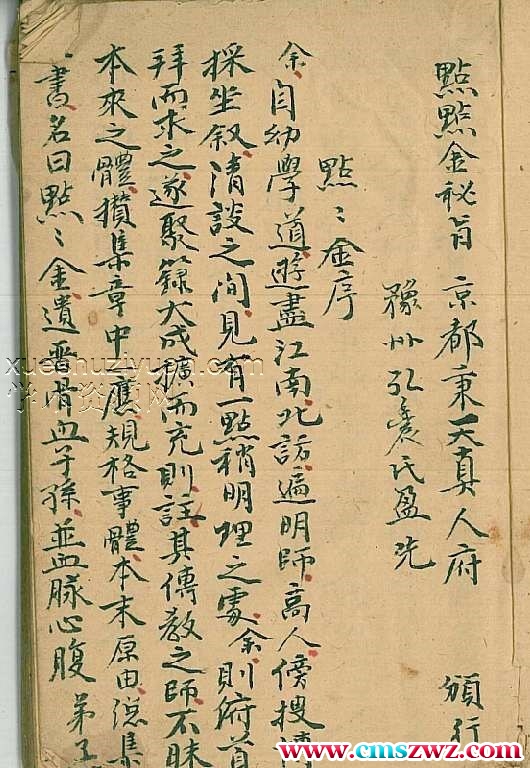 點點金秘旨 京都秉天真人府 頒行
豫州弘農氏盈先
點〻金序
余自幼學道遊盡江南北訪遍明師高人傍搜
採坐叙清談之間見有一點稍明理之處余則府首
拜而求之遂聚錄大成擴而充則註其傳教之師不昧
本來之體攢集章中應規格事體本末原由總集
書名曰點〻金遺晋骨血子孫並血脉心腹 弟子
www.cmszwz.com